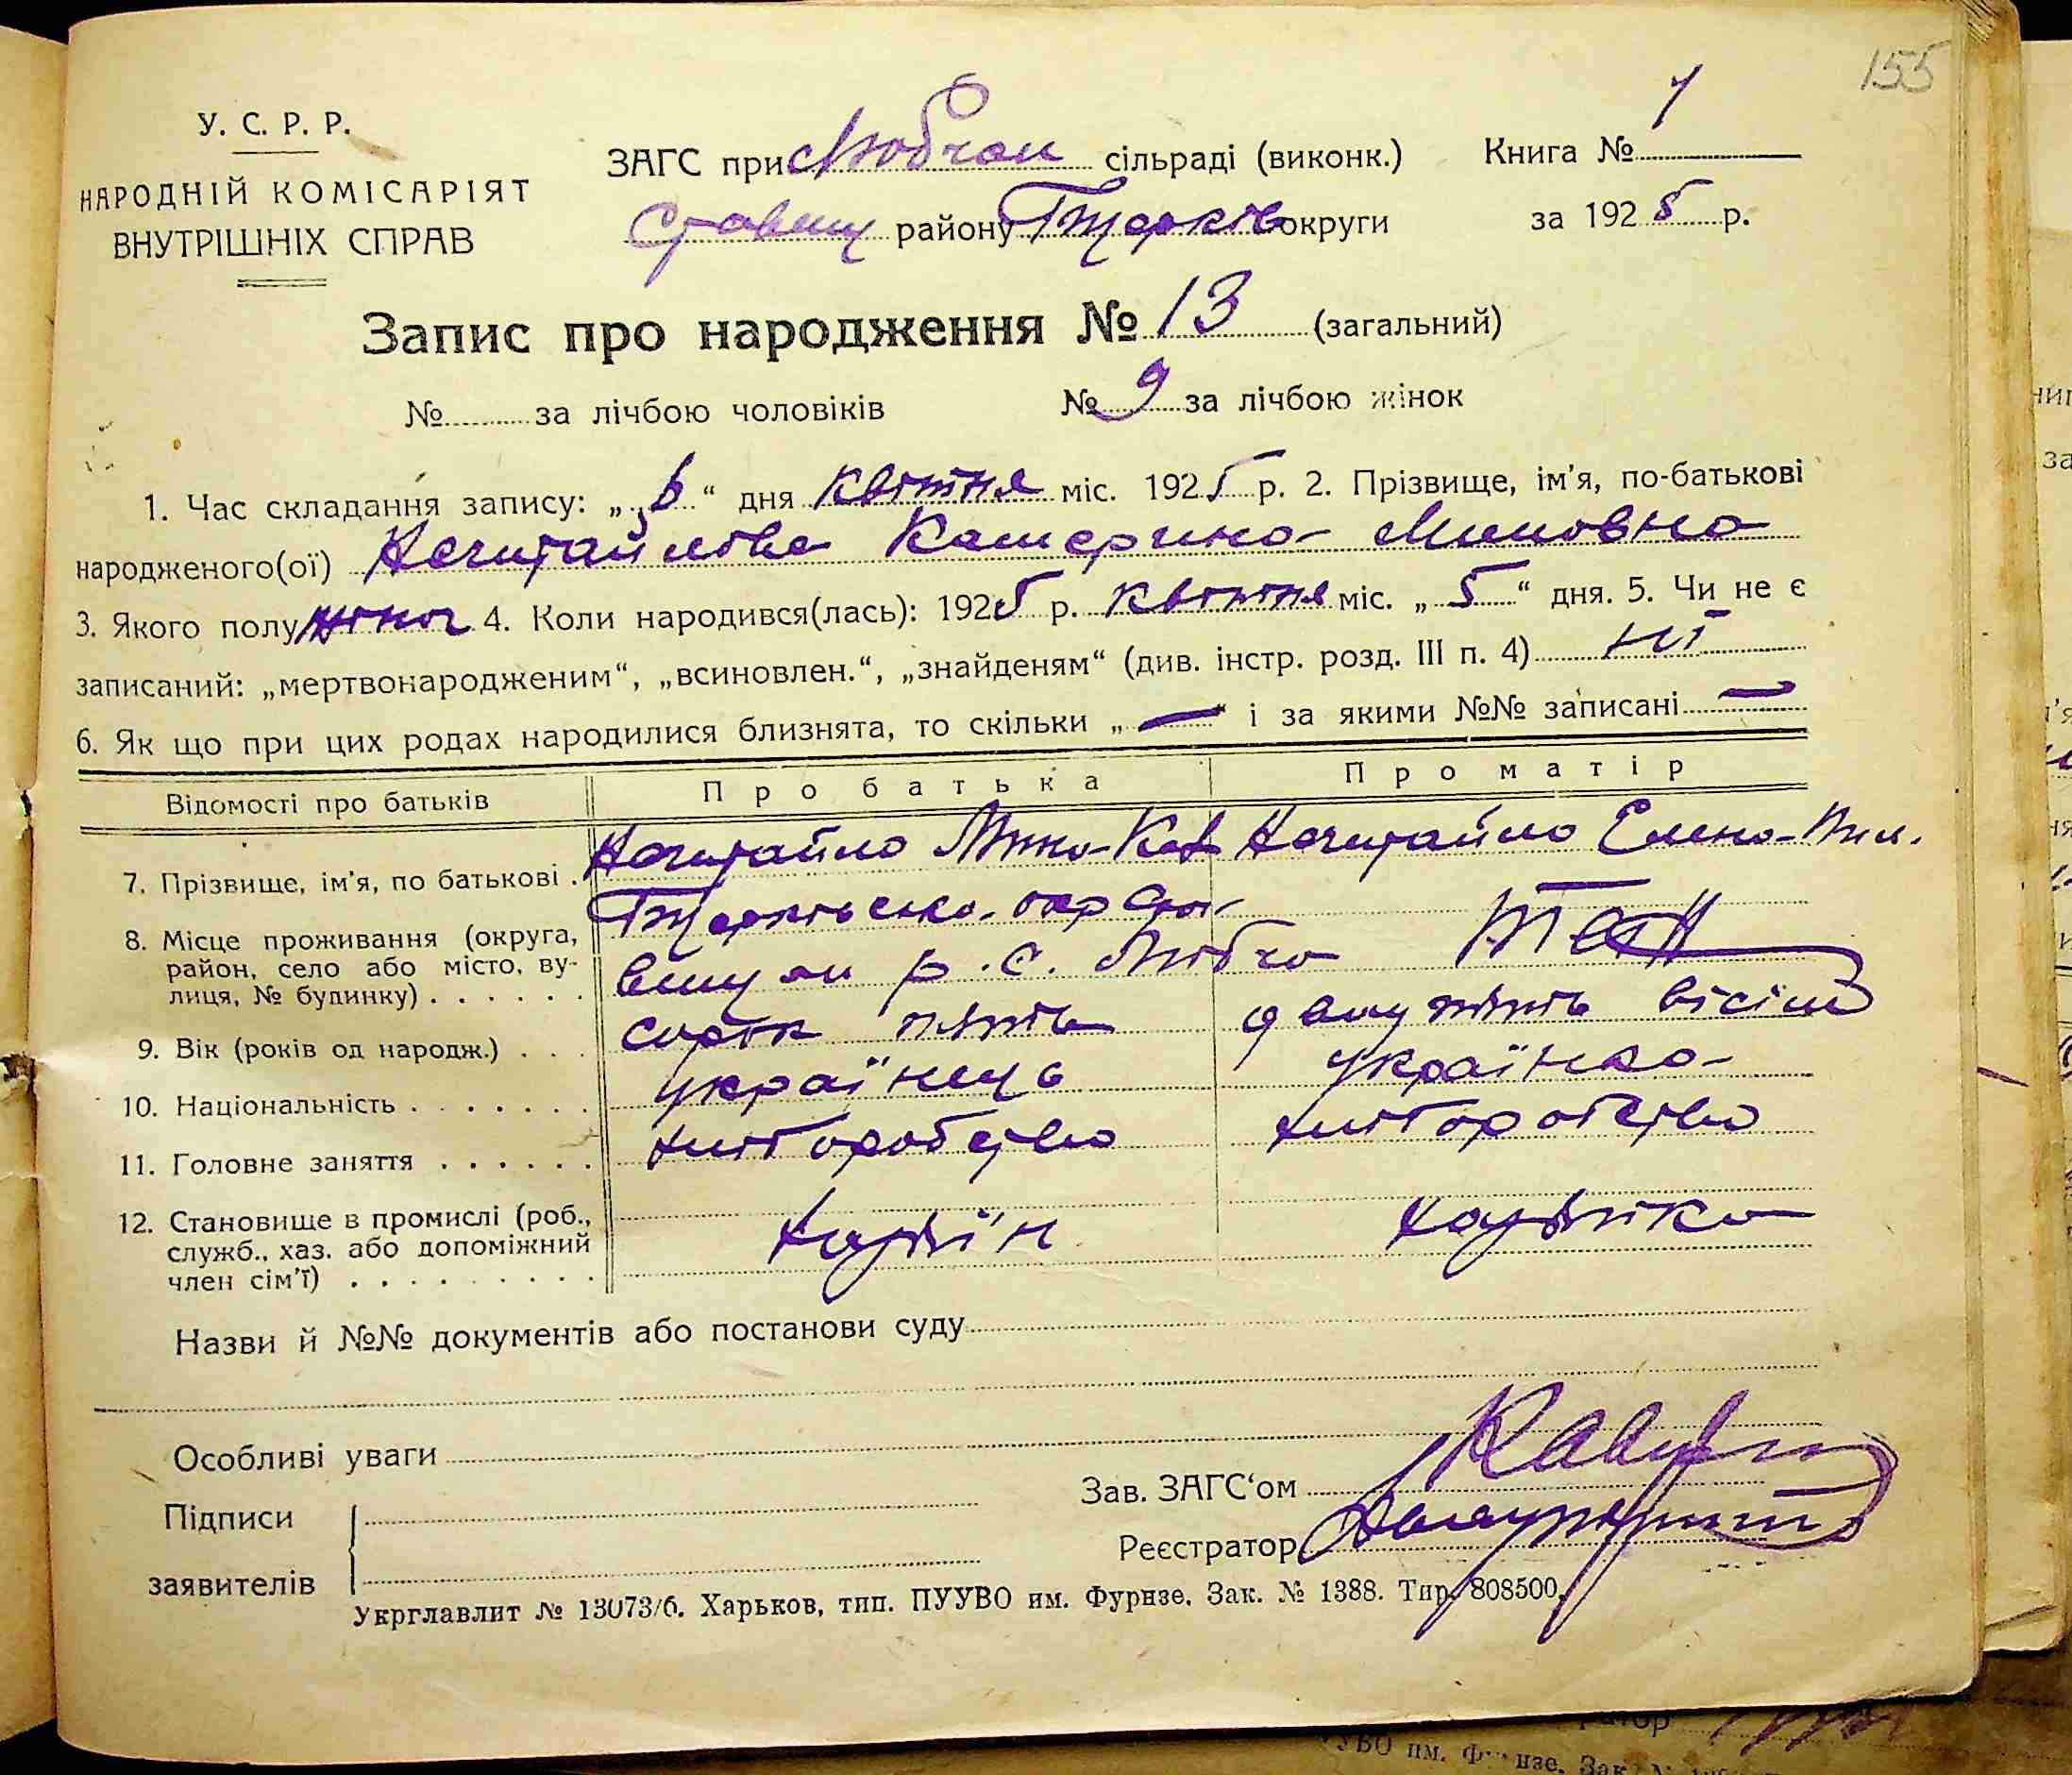 155
У. С. Р. Р.
НАРОДНІЙ КОМІСАРІЯТ
ВНУТРІШНІХ СПРАВ
ЗАГС при Любчан сільраді (виконк.)
Книга № 1
Ставищ району округи
за 1925 р.
Запис про народження № 13 (загальний)
№ за лічбою чоловіків № 9 за лічбою жінок
1. Час складання запису: „6“ дня квітня міс. 1925 р. 2. Прізвище, ім’я, по-батькові
народженого(ої) Нечитайлова Катерина
3. Якого полу жіноч 4. Коли народився(лась): 1925 р. квітня міс. „5“ дня. 5. Чи не є
записаний: „мертвонародженим“, „всиновлен.“, „знайденям“ (див. інстр. розд. III п. 4) ні
6. Як що при цих родах народилися близнята, то скільки „—“ і за якими №№ записані —
Відомості про батьків Про батька Про матір
7. Прізвище, ім’я, по батькові . Нечитайло Нечитайло Елена
8. Місце проживання (округа,
район, село або місто, ву-
лиця, № будинку) . . . . . .
9. Вік (років од народж.) . . . сорок пять двадцять вісім
10. Національність . . . . . . . українець українка
11. Головне заняття . . . . . . хліборобство хліборобство
12. Становище в промислі (роб.,
служб., хаз. або допоміжний
член сім’ї) . . . . . . . . .
Назви й №№ документів або постанови суду
Особливі уваги
Зав. ЗАГС‘ом
Підписи
Реєстратор
заявителів
Укрглавлит № 13073/6. Харьков, тип. ПУУВО им. Фурнзе. Зак. № 1388. Тир. 808500.